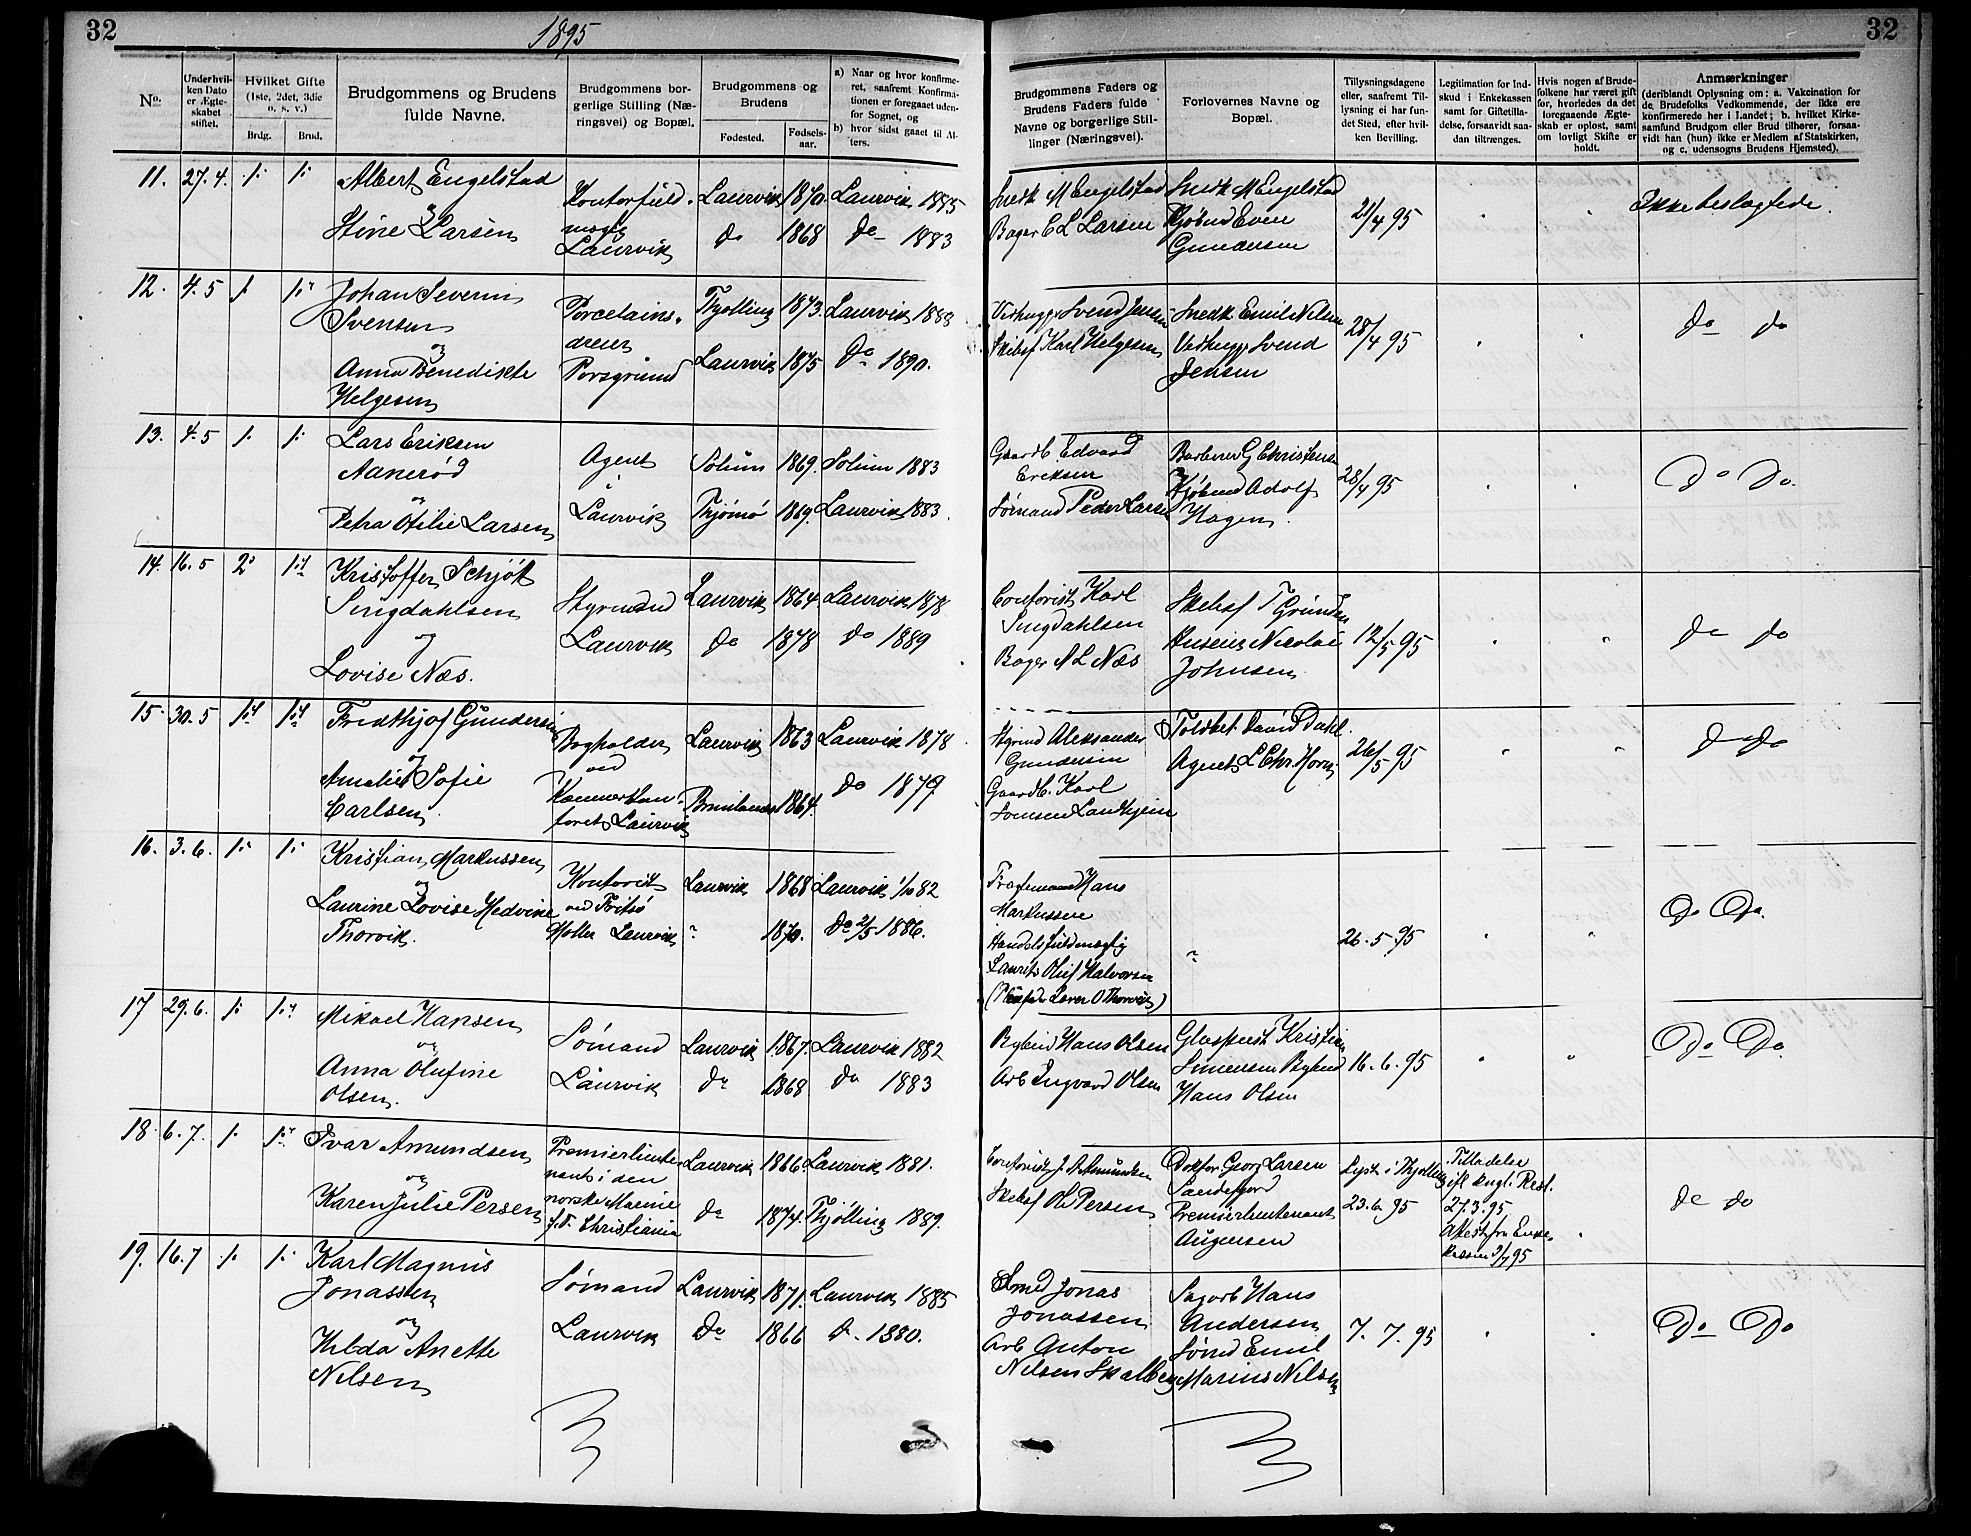 32
1895
No.
Underhvil-
ken Dato
er Ægte-
skabet
stiftet.
Hvilket Gifte
(1ste, 2det, 3die
o. s. v.)
Brdg.
Brud.
Brudgommens og Brudens
fulde Navne.
Brudgommens bor-
gerlige Stilling (Næ-
ringsvei) og Bopæl.
Brudgommens og
Brudens
Fødested.
Fødsels-
aar.
a) Naar og hvor konfirme-
ret, saafremt Konfirma-
tionen er foregaaet uden-
for Sognet, og
b) hvor sidst gaaet til Al-
ters.
11. 27.4. 1. 1. Albert Engelstad
og
Stine Larsen
Laurvik
Laurvik 1870 Laurvik 1885
do 1868 do 1883
12. 4.5 1. 1. Johan Severin
Svensen
og
Anna Benedikte
Helgesen
Porcelains-
dreier
Porsgrund
Thjølling 1873. Laurvik 1888
Laurvik 1875 do 1890.
13. 4.5 1. 1. Lars Eriksen
Aanerød
og
Petra Otilie Larsen
Agent
Laurvik
Solum 1869. Solum 1883
Thjømø 1869. Laurvik 1883.
14. 16.5 2. 1. Kristoffer Schjøt
Singdahlsen
og
Lovise Næs.
Styrmand
Laurvik
Laurvik 1864 Laurvik 1878
do 1878 do 1889
15. 30.5 1. 1. Fredthjof Gundersen
og
Amalie Sofie
Carlsen
Bogholder
ved
Laurvik
Laurvik 1863 Laurvik 1878
Brunlanes 1864. do 1879
16. 3.6. 1. 1. Kristian Markussen
og
Laurine Lovise Hedvine
Thorvik.
Kontorist
ved Fritsø
Møller Laurvik
Laurvik 1868 Laurvik 1/10 82
" 1870. do 2/5 1886.
17 29.6. 1. 1. Mikael Hansen
og
Anna Olufine
Olsen.
Sømand
Laurvik
Laurvik 1867. Laurvik 1882
do 1868 do 1883
18. 6.7. 1. 1. Ivar Amundsen
og
Karen Julie Persen
Premierlieute-
nant i den
norske Marine
f.T. Christiania
Laurvik 1866. Laurvik 1881.
do 1874. Thjølling 1889.
19. 16.7 1. 1. Karl Magnus
Jonassen
og
Hilda Anette
Nilsen
Sømand
Laurvik
Laurvik 1871. Laurvik 1885
do 1866 d. 1880.
32
Brudgommens Faders og
Brudens Faders fulde
Navne og borgerlige Stil-
linger (Næringsvei).
Forlovernes Navne og
Bopæl.
Tillysningsdagene
eller, saafremt Til-
lysning ei har fun-
det Sted, efter hvil-
ken Bevilling.
Legitimation for Ind-
skud i Enkekassen
samt for Giftetilla-
delse, forsaavidt saa-
dan tiltrænges.
Hvis nogen af Brude-
folkene har været gift
før, hvorledes da det
foregaaende Ægte-
skab er opløst, samt
om lovligt Skifte er
holdt.
Anmærkninger
(deriblandt Oplysning om: a. Vakcination for
de Brudefolks Vedkommende, der ikke ere
konfirmerede her i Landet; b. hvilket Kirke-
samfund Brudgom eller Brud tilhører, forsaa-
vidt han (hun) ikke er Medlem af Statskirken,
og c. udensogns Brudens Hjemsted).
Snedk M Engelstad
Bager C L Larsen
Snedk M Engelstad
Kjøbmd Even
Gundersen
21/4 95
Ikke beslægtede.
Vedhugger Svend Jensen
Skibsf Karl Helgesen
Snedk Emil Nilsen
Vedhugger Svend
Jensen
28/4 95
do do
Gaardb. Edvard
Eriksen
Sømand Peder Larsen
Barberer G Christensen
Kjøbmd Adolf
Hagen.
28/4 95
do do.
Contorist Karl
Singdahlsen
Bager A L Næs
Skibsf
Nicolai
Johnsen
12/5 95
do do
Styrmd Aleksander
Gundersen
Gaardb. Karl
David Dahl.
Agent L Chr. Horn
26/5 95
do do
Hans
Markussen
Handelsfuldmægtig
Laurits Oluf Halvorsen
"
26.5.95
do do.
Hans Olsen
Arb Ingvard Olsen
Kristian
Simensen
Hans Olsen
16.6.95
do do.
Contorist J. A. Amundsen
Skibsf Ol. Persen
Doktor Georg Larsen
Sandefjord
Premierlieutenant
Lyst i Thjølling
23.6 95
Tilladelse
Resl.
27.3.95.
Attest fra Enke-
kassen 3/7 95
do do
Smed Jonas
Jonassen
Arb Anton
Nilsen Skalberg
Sagarb Hans
Andersen
Sømd Emil
Marius Nilsen
7.7.95
do do